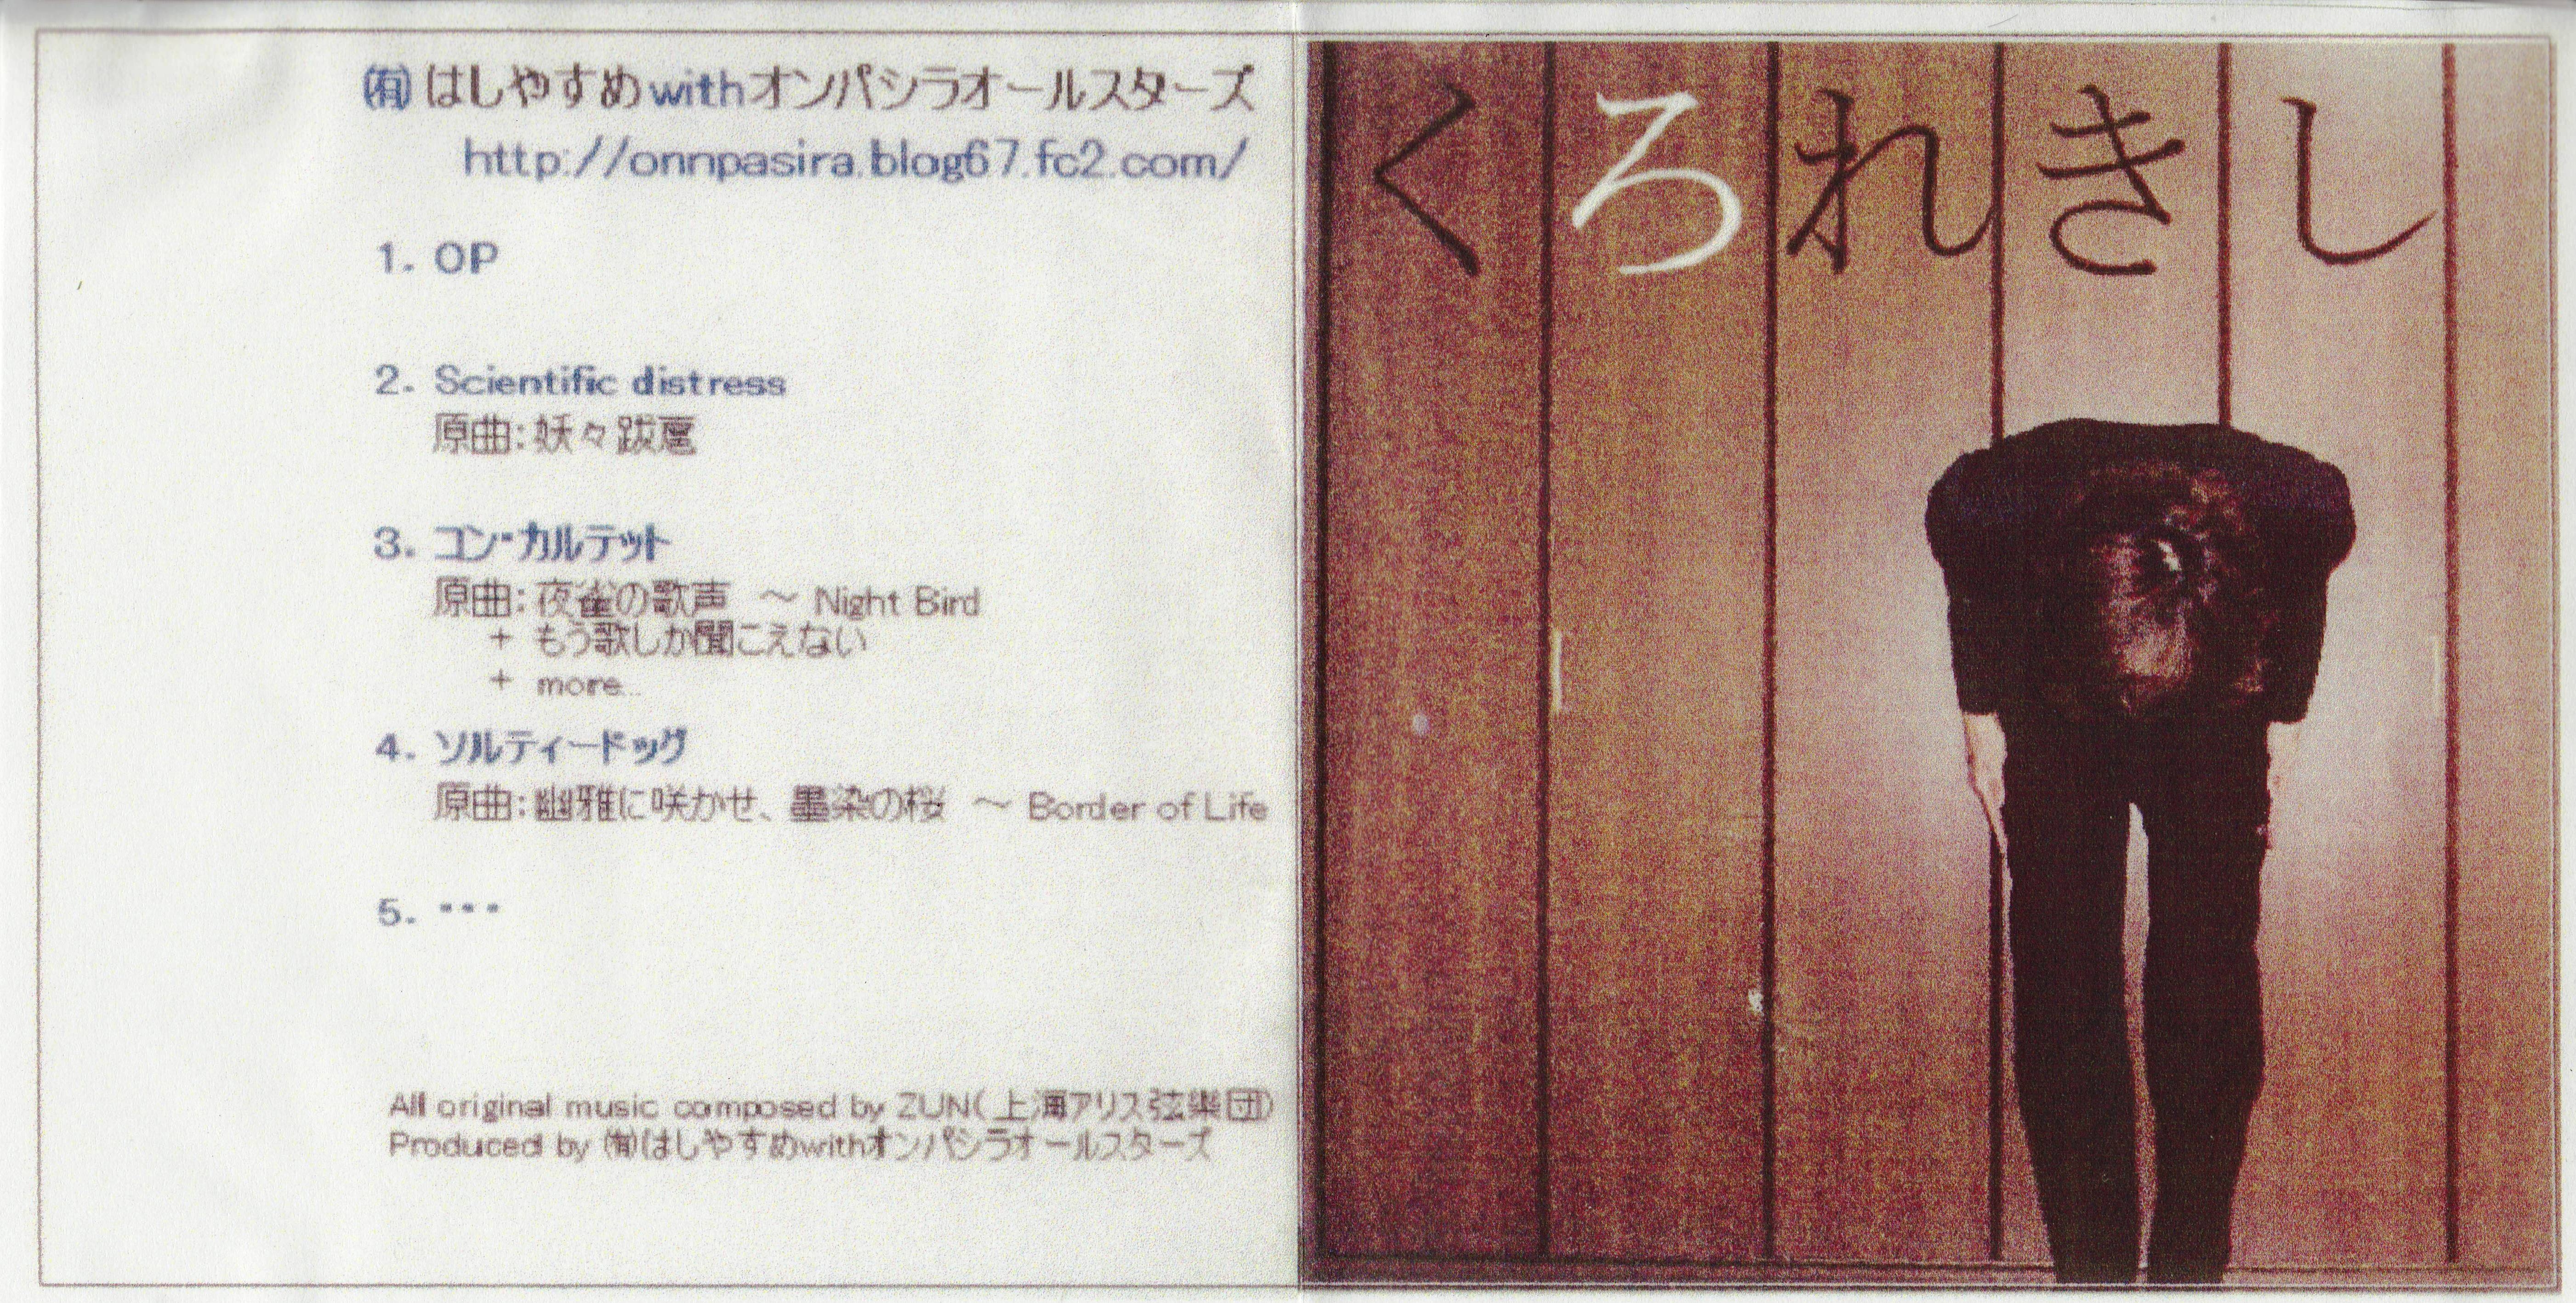 ㈲はしやすめwithオンパシラオールスターズ
http://onnpasira.blog67.fc2.com/
1. OP
2. Scientific distress
原曲：妖々跋扈
3. コン・カルテット
原曲：夜雀の歌声　～ Night Bird
+ もう歌しか聞こえない
+ more...
4. ソルティードッグ
原曲：幽雅に咲かせ、墨染の桜　～ Border of Life
5. ・・・
All original music composed by ZUN(上海アリス弦樂団)
Produced by ㈲はしやすめwithオンパシラオールスターズ
くろれきし